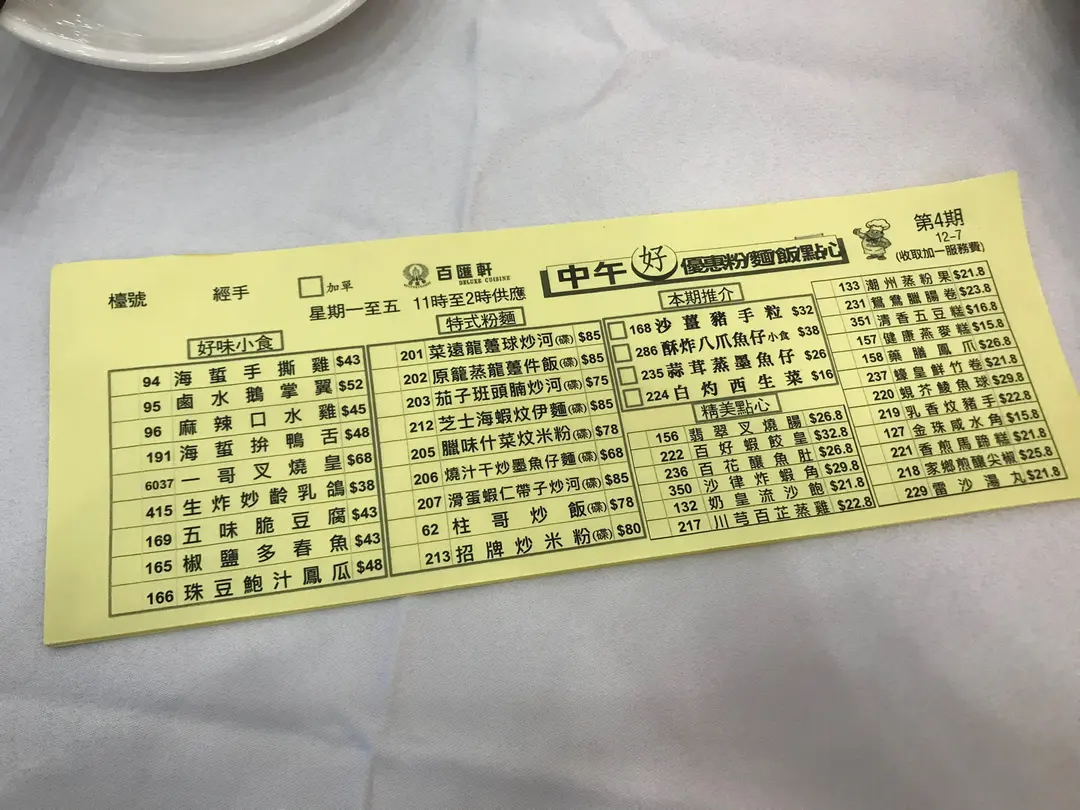 檯號 經手 加單
百匯軒
DELUXE CUISINE
星期一至五 11時至2時供應
中午好優惠粉麵飯點心
第4期
12-7
(收取加一服務費)
好味小食
94 海蜇手撕雞 $43
95 鹵水鵝掌翼 $52
96 麻辣口水雞 $45
191 海蜇拚鴨舌 $48
6037 一哥叉燒皇 $68
415 生炸妙齡乳鴿 $38
169 五味脆豆腐 $43
165 椒鹽多春魚 $43
166 珠豆鮑汁鳳瓜 $48
特式粉麵
201 菜遠龍躉球炒河(碟) $85
202 原籠蒸龍躉件飯(碟) $85
203 茄子班頭腩炒河(碟) $75
212 芝士海蝦炆伊麵(碟) $85
205 臘味什菜炆米粉(碟) $78
206 燒汁干炒墨魚仔麵(碟) $68
207 滑蛋蝦仁帶子炒河(碟) $85
62 柱哥炒飯(碟) $78
213 招牌炒米粉(碟) $80
本期推介
168 沙薑豬手粒 $32
286 酥炸八爪魚仔小食 $38
235 蒜茸蒸墨魚仔 $26
224 白灼西生菜 $16
精美點心
156 翡翠叉燒腸 $26.8
222 百好蝦餃皇 $32.8
236 百花釀魚肚 $26.8
350 沙律炸蝦角 $29.8
132 奶皇流沙飽 $21.8
217 川芎百芷蒸雞 $22.8
133 潮州蒸粉果 $21.8
231 鴛鴦臘腸卷 $23.8
351 清香五豆糕 $16.8
157 健康燕麥糕 $15.8
158 藥膳鳳爪 $26.8
237 蠔皇鮮竹卷 $21.8
220 蜆芥鯪魚球 $29.8
219 乳香炆豬手 $22.8
127 金珠咸水角 $15.8
221 香煎馬蹄糕 $21.8
218 家鄉煎釀尖椒 $25.8
229 雷沙湯丸 $21.8